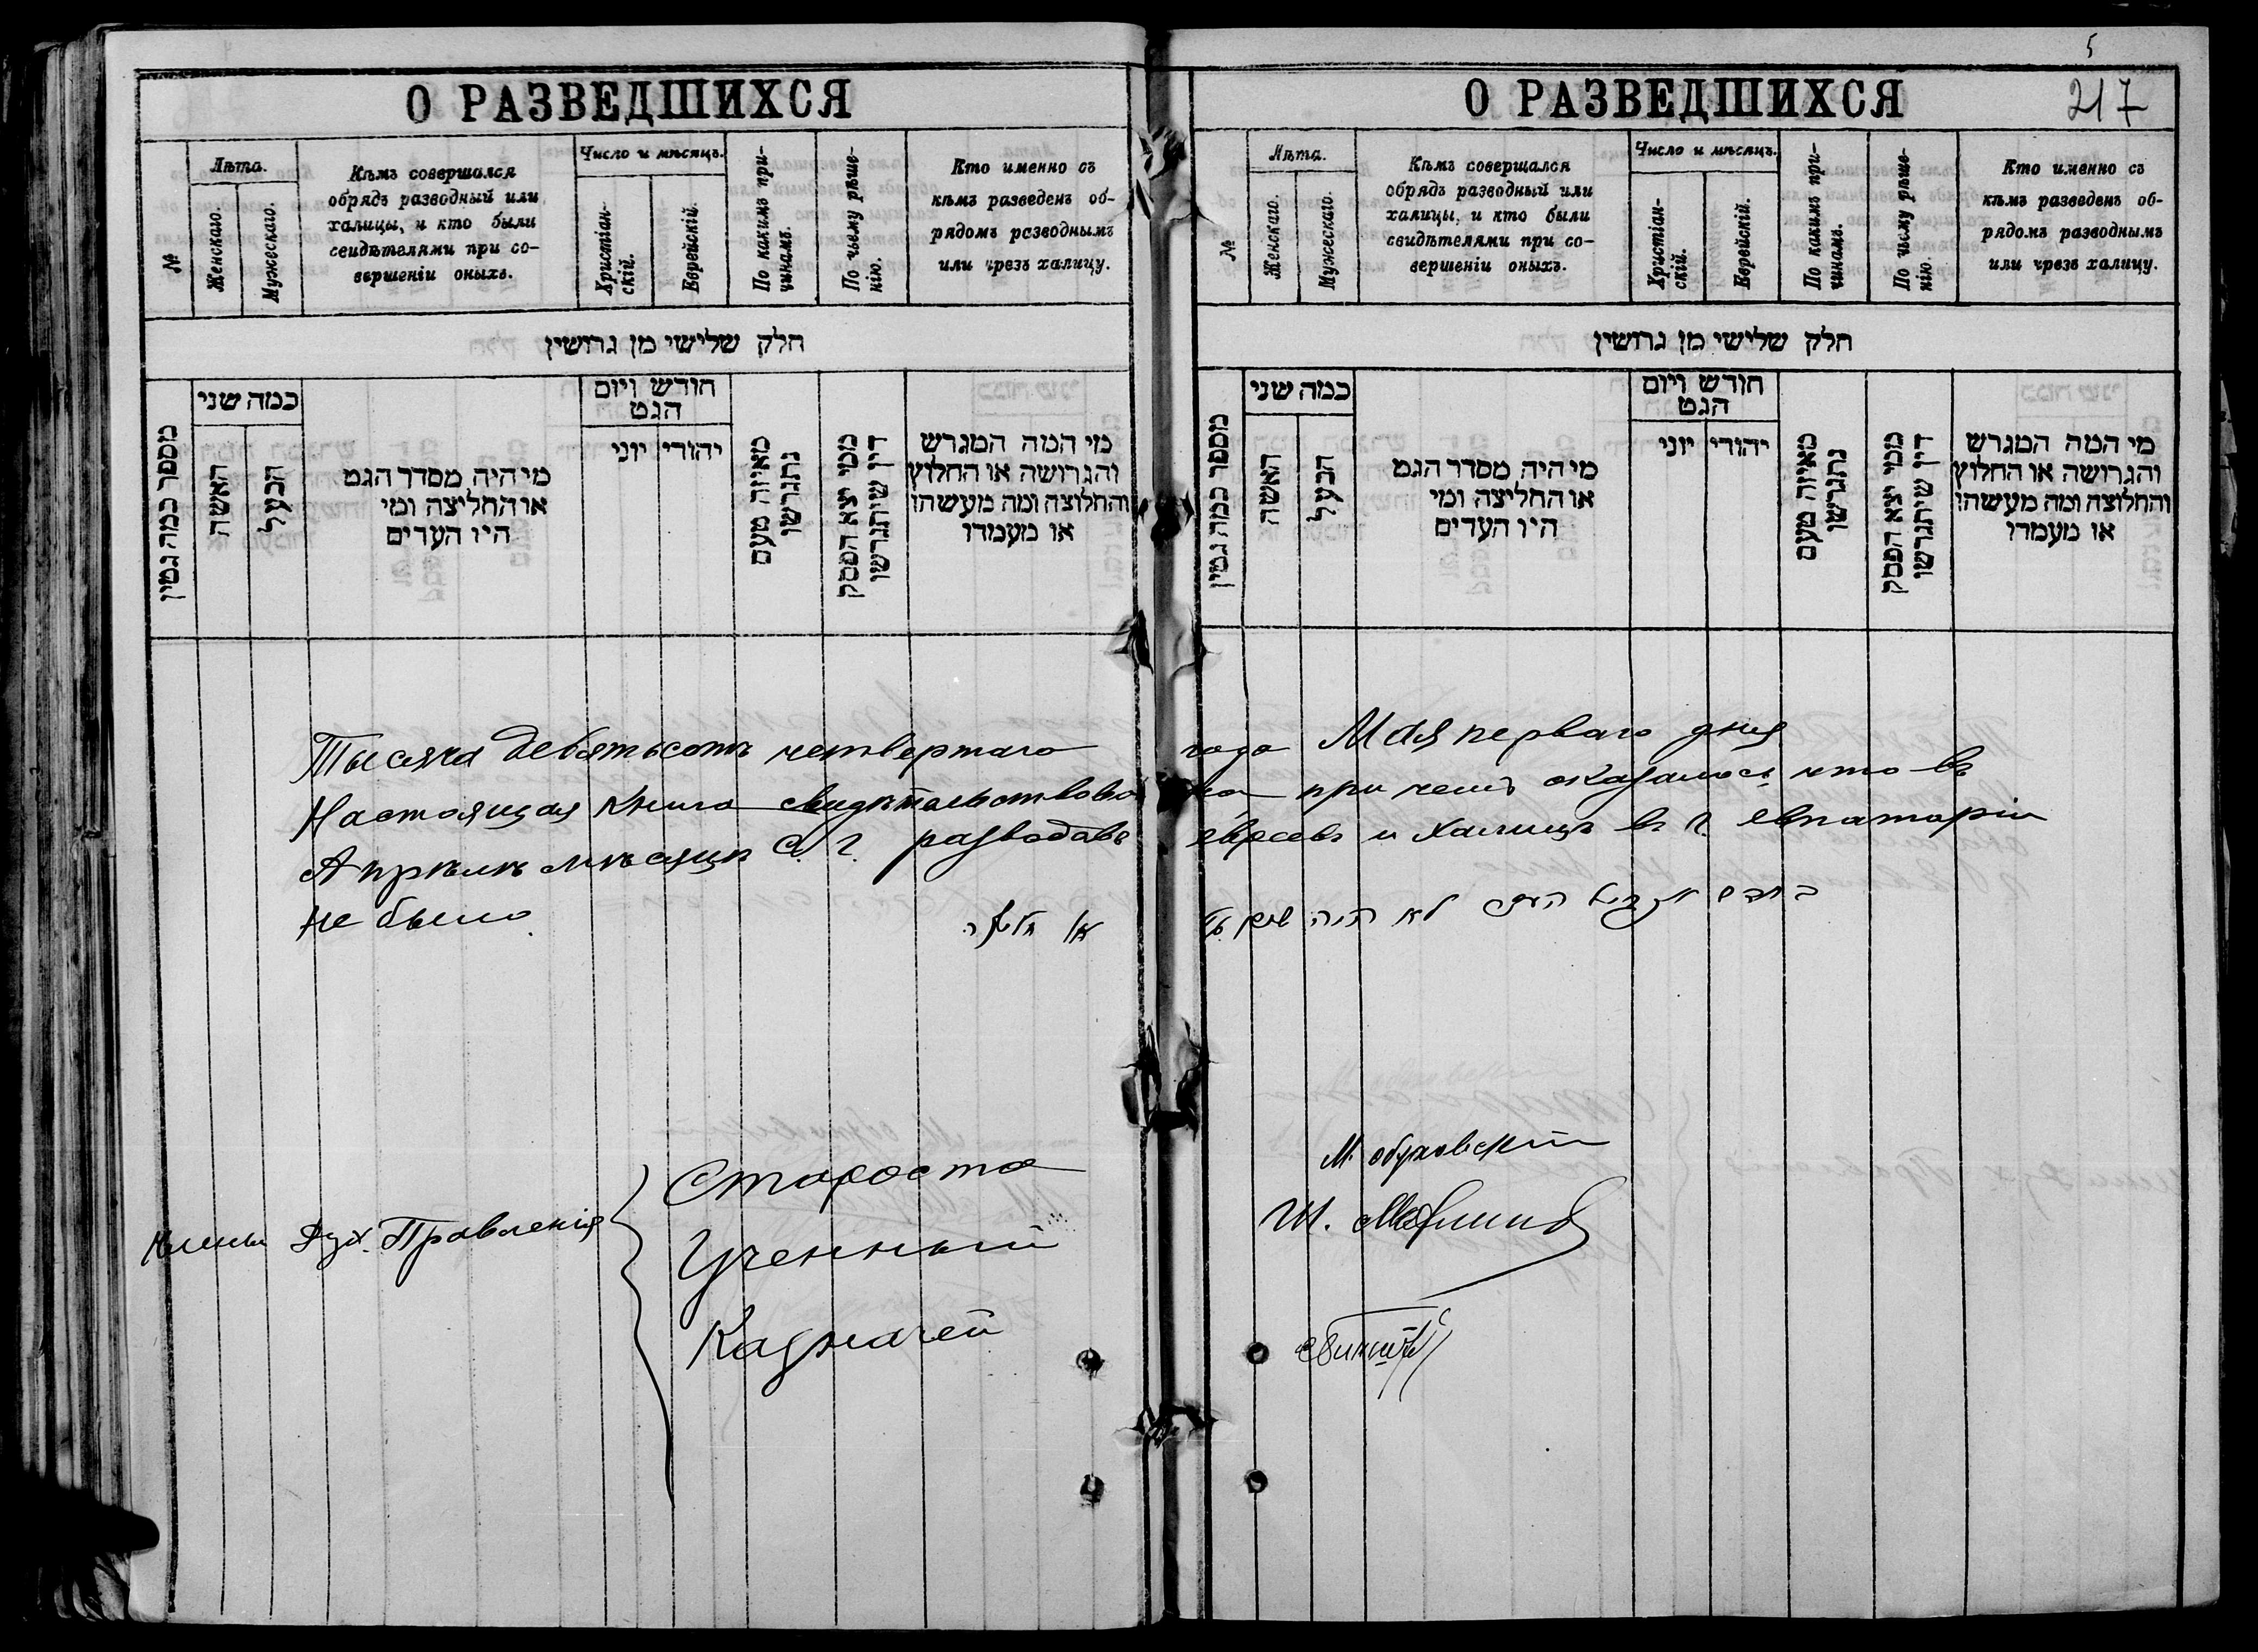 5
217
О РАЗВЕДШИХСЯ
№
Лѣта.
Женскаго.
Мужескаго.
Кѣмъ совершался
обрядъ разводный или
халицы, и кто были
свидѣтелями при со-
вершеніи оныхъ.
Число и мѣсяцъ.
Христіан-
скій.
Еврейскій.
По какимъ при-
чинамъ.
По чьему рѣше-
нію.
Кто именно съ
кѣмъ разведенъ об-
рядомъ разводнымъ
или чрезъ халицу.
חלק שלישי מן גרושין
מספר כמה גטין
כמה שני
האשה
הבעל
מי היה מסדר הגט
או החליצה ומי
היו העדים
חודש ויום
הגט
יוני
יהודי
מאיזה טעם
נתגרשו
ממי יצא הפסק
דין שיתגרשו
מי המה המגרש
והגרושה או החלוץ
והחלוצה ומה מעשהו
או מעמדו
О РАЗВЕДШИХСЯ
№
Лѣта.
Женскаго.
Мужескаго.
Кѣмъ совершался
обрядъ разводный или
халицы, и кто были
свидѣтелями при со-
вершеніи оныхъ.
Число и мѣсяцъ.
Христіан-
скій.
Еврейскій.
По какимъ при-
чинамъ.
По чьему рѣше-
нію.
Кто именно съ
кѣмъ разведенъ об-
рядомъ разводнымъ
или чрезъ халицу.
חלק שלישי מן גרושין
מספר כמה גטין
כמה שני
האשה
הבעל
מי היה מסדר הגט
או החליצה ומי
היו העדים
חודש ויום
הגט
יוני
יהודי
מאיזה טעם
נתגרשו
ממי יצא הפסק
דין שיתגרשו
מי המה המגרש
והגרושה או החלוץ
והחלוצה ומה מעשהו
או מעמדו
Тысяча девятьсотъ четвертаго года Мая перваго дня
Настоящая книга свидѣтельствована при чемъ оказалось что въ
Апрѣлѣ мѣсяцѣ с. г. разводовъ евреевъ и халицъ въ г. Евпаторіи
не было
לא היה שום
Члены Дух. Правленія
Староста М. Обуховскій
Ученный Ш.
Казначей